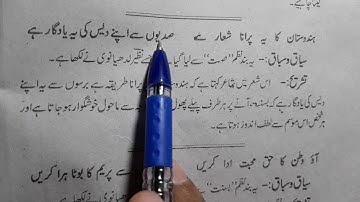 لیا چاہیے۔
ہندوستان کا یہ پرانا شعار ہے صدیوں سے اپنے دیس کی یہ یادگار ہے
سیاق و سباق:- یہ بند نظم ”بسنت“ سے لیا گیا ہے۔ جسے نظیر لدھیانوی نے لکھا ہے۔
تشریح:- اس شعر میں شاعر کہتا ہے کہ ہندوستان کا یہ پرانا طریقہ ہے برسوں سے یہ اپنے
دیس کی یادگار ہے کہ بسنت آتے ہر طرف پیلے پھول ماحول خوشگوار ہو جاتا ہے اور
ہر شخص اس موسم سے لطف اندوز ہوتا ہے۔
آؤ وطن کا حق محبت ادا کریں سے پریم کا بوٹا ہرا کریں
سیاق و سباق:- یہ بند نظم ”بسنت“ دھیانوی نے لکھا ہے۔